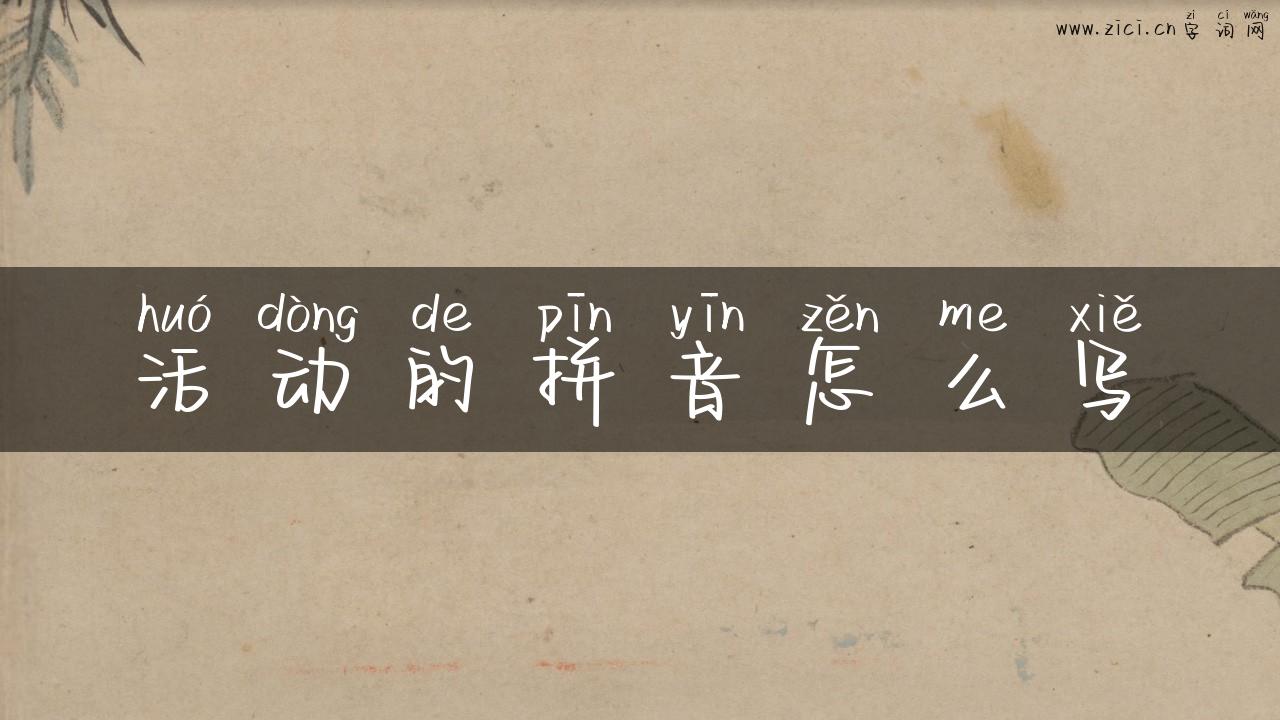 zì cí wǎng
www.zici.cn 字词网
huó dòng de pīn yīn zěn me xiě
活动的拼音怎么写